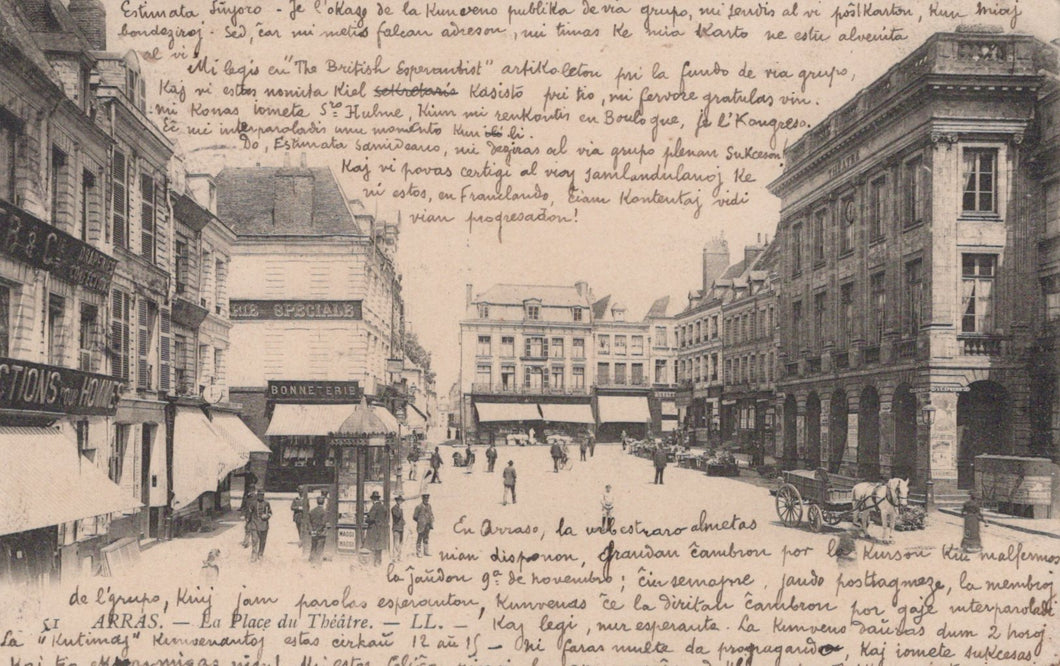 Estimata Sinjoro - Je l'okazo de la Kunveno publika de via grupo, mi sendis al vi poŝtkarton, kun miaj
bondeziroj. Sed, ĉar mi metis falsan adreson, mi timas ke mia karto ne estu alvenita
al vi.
Mi legis en "The British Esperantist" artikoleton pri la fondo de via grupo,
Kaj vi estas nomita kiel sekretario Kasisto pri tio, mi fervore gratulas vin.
mi konas iomete Sro Hulme, kiun mi renkontis en Boulogne, je l'Kongreso.
Eĉ mi interparoladis unu momento kun li.
Do, Estimata Samideano, mi deziras al via grupo plenan sukceson!
Kaj vi povas certigi al viaj samlandulanoj ke
ni estos, en Franclando, ĉiam kontentaj vidi
vian progresadon!
B & Cie DRAPERIE
RIE SPECIALE
BONNETERIE
CTIONS POUR HOMMES
THEATRE
MAGGI
En Arraso, la urbestraro almetas
nian disponon, grandan ĉambron por la kurson kiu malfermos
la ĵaŭdon 9a de novembro; ĉiusemajne, ĵaŭdo posttagmeze, la membroj
de l'grupo, kiuj jam parolas esperanton, kunvenas ĉe la diritan ĉambron por gaje interparoladi
51 ARRAS. — La Place du Théâtre. — LL. —
Kaj legi, nur esperante. La kunveno daŭras dum 2 horoj.
La "kutimaj" kunvenantoj estas cirkaŭ 12 aŭ 15 - Ni faras multe da propagando, kaj iomete sukcesas